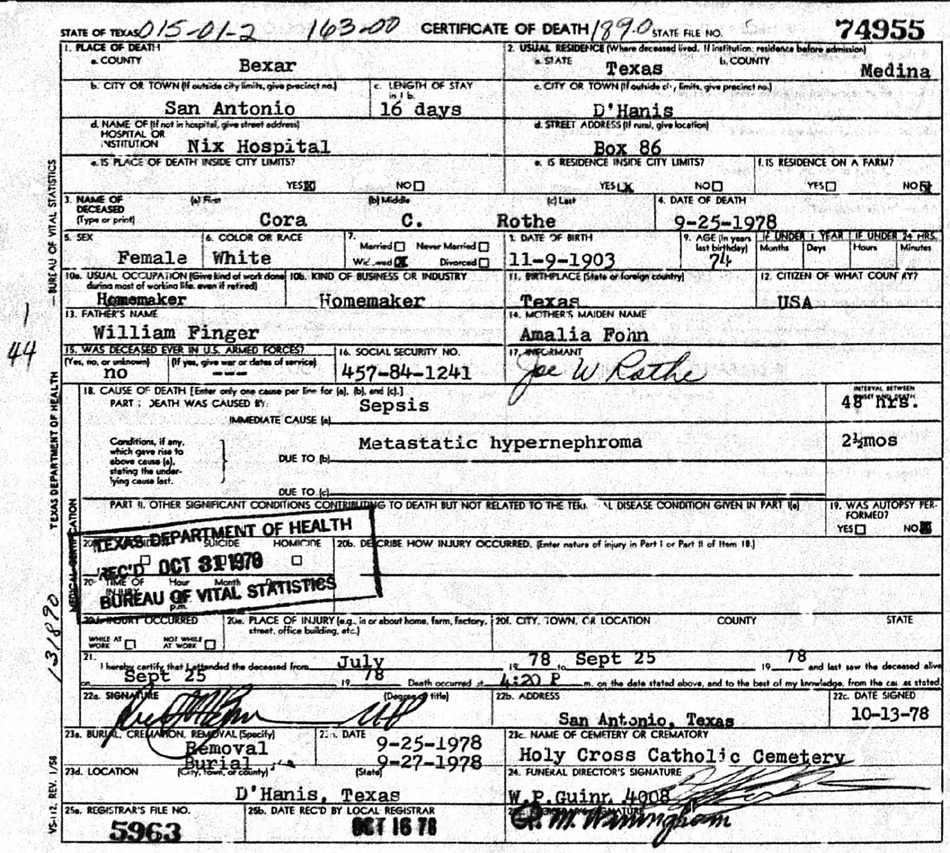 STATE OF TEXAS 015-01-2 163-00 CERTIFICATE OF DEATH 1890 STATE FILE NO. 74955
1. PLACE OF DEATH
a. COUNTY Bexar
2. USUAL RESIDENCE (Where deceased lived. If institution: residence before admission)
a. STATE Texas b. COUNTY Medina
b. CITY OR TOWN (If outside city limits, give precinct no.) San Antonio
c. LENGTH OF STAY in 1 b. 16 days
c. CITY OR TOWN (If outside city limits, give precinct no.) D'Hanis
d. NAME OF (If not in hospital, give street address) HOSPITAL OR INSTITUTION Nix Hospital
d. STREET ADDRESS (If rural, give location) Box 86
e. IS PLACE OF DEATH INSIDE CITY LIMITS?
YES☒ NO☐
e. IS RESIDENCE INSIDE CITY LIMITS?
YES☒ NO☐
f. IS RESIDENCE ON A FARM?
YES☐ NO☒
3. NAME OF DECEASED (Type or print)
(a) First Cora (b) Middle C. (c) Last Rothe
4. DATE OF DEATH 9-25-1978
5. SEX Female
6. COLOR OR RACE White
7. Married☐ Never Married☐
Widowed☒ Divorced☐
DATE OF BIRTH 11-9-1903
9. AGE (In years last birthday) 74
IF UNDER 1 YEAR Months Days
IF UNDER 24 HRS. Hours Minutes
10a. USUAL OCCUPATION (Give kind of work done during most of working life, even if retired) Homemaker
10b. KIND OF BUSINESS OR INDUSTRY Homemaker
11. BIRTHPLACE (State or foreign country) Texas
12. CITIZEN OF WHAT COUNTRY? USA
13. FATHER'S NAME William Finger
14. MOTHER'S MAIDEN NAME Amalia Fohn
15. WAS DECEASED EVER IN U.S. ARMED FORCES?
(Yes, no, or unknown) no (If yes, give war or dates of service) ---
16. SOCIAL SECURITY NO. 457-84-1241
17. INFORMANT Joe W Rothe
18. CAUSE OF DEATH [Enter only one cause per line for (a), (b), and (c).]
INTERVAL BETWEEN ONSET AND DEATH
PART I DEATH WAS CAUSED BY:
IMMEDIATE CAUSE (a) Sepsis 48 hrs.
Conditions, if any, which gave rise to above cause (a), stating the underlying cause last.
DUE TO (b) Metastatic hypernephroma 2½mos
DUE TO (c)
PART II. OTHER SIGNIFICANT CONDITIONS CONTRIBUTING TO DEATH BUT NOT RELATED TO THE TERMINAL DISEASE CONDITION GIVEN IN PART I(a)
19. WAS AUTOPSY PERFORMED?
YES☐ NO☒
SUICIDE HOMICIDE
20b. DESCRIBE HOW INJURY OCCURRED. (Enter nature of injury in Part I or Part II of Item 18.)
TEXAS DEPARTMENT OF HEALTH
REC'D OCT 31 1978
BUREAU OF VITAL STATISTICS
TIME OF INJURY Hour Month
p.m.
20d. INJURY OCCURRED
WHILE AT WORK ☐ NOT WHILE AT WORK ☐
20e. PLACE OF INJURY (e.g., in or about home, farm, factory, street, office building, etc.)
20f. CITY, TOWN, OR LOCATION COUNTY STATE
21. I hereby certify that I attended the deceased from July 19 78 to Sept 25 19 78 and last saw the deceased alive
on Sept 25 19 78 Death occurred at 4:20 P m. on the date stated above, and to the best of my knowledge, from the causes stated.
22a. SIGNATURE (Degree or title)
22b. ADDRESS San Antonio, Texas
22c. DATE SIGNED 10-13-78
23a. BURIAL, CREMATION, REMOVAL (Specify) Removal Burial
23b. DATE 9-25-1978
9-27-1978
23c. NAME OF CEMETERY OR CREMATORY Holy Cross Catholic Cemetery
23d. LOCATION (City, town, or county) (State)
D'Hanis, Texas
24. FUNERAL DIRECTOR'S SIGNATURE
W.P.Guinn 4008
25a. REGISTRAR'S FILE NO. 5963
25b. DATE REC'D BY LOCAL REGISTRAR OCT 16 78
VS-112, REV. 1/58
TEXAS DEPARTMENT OF HEALTH — BUREAU OF VITAL STATISTICS
MEDICAL CERTIFICATION
1
44
131890